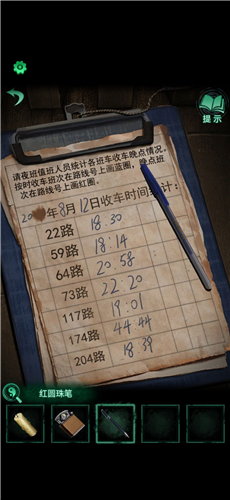 提示
请夜班值班人员统计各班车收车晚点情况,
按时收车班次在路线号上画蓝圈,晚点班
次在路线号上画红圈。
20 年8月12日收车时间统计:
22路 18:30
59路 18:14
64路 20:58
73路 22 20
117路 19:01
174路 44 44
204路 18
红圆珠笔